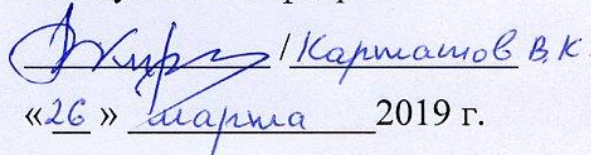 / Карташов В.К
«26» марта 2019 г.